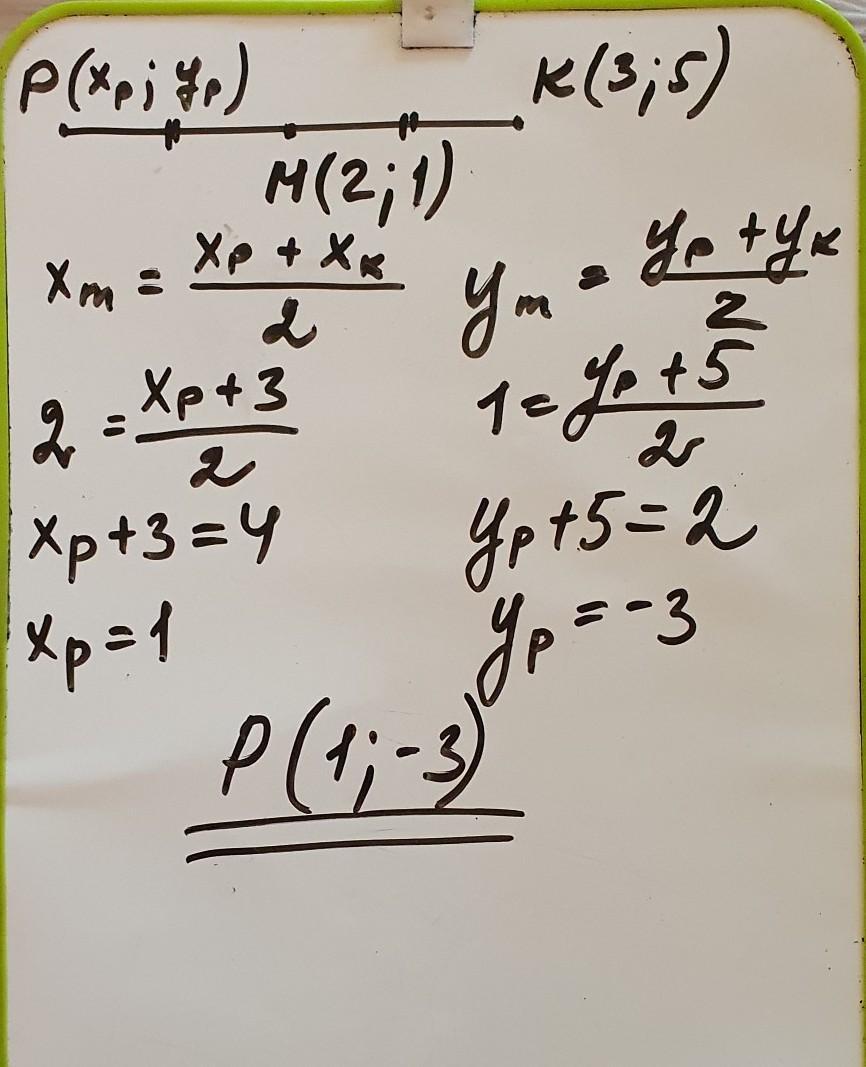 P(xₚ; yₚ) K(3;5)
M(2;1)
xₘ = (xₚ + xₖ)/2 yₘ = (yₚ + yₖ)/2
2 = (xₚ+3)/2 1 = (yₚ+5)/2
xₚ+3=4 yₚ+5=2
xₚ=1 yₚ=-3
P(1;-3)